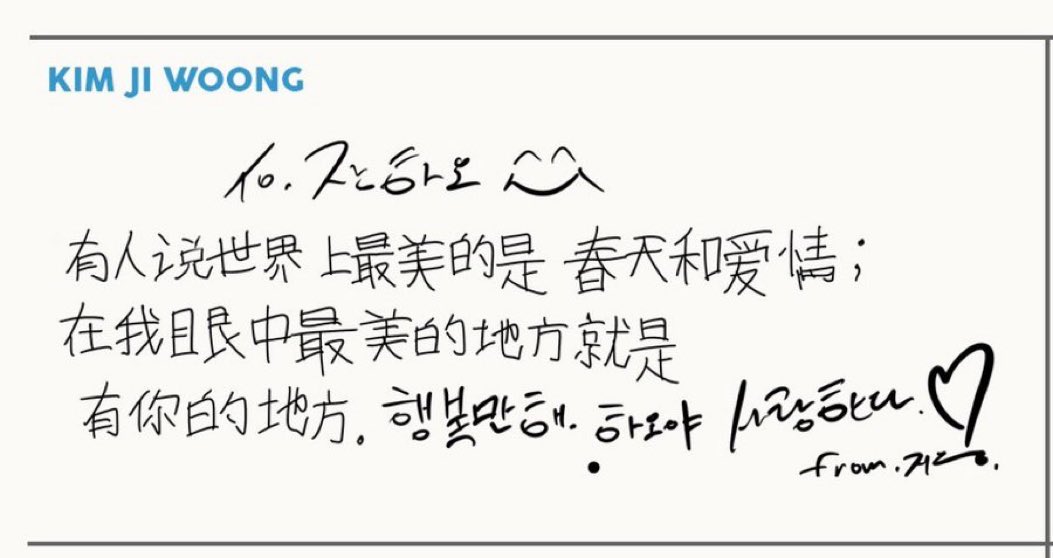 KIM JI WOONG
To. 장하오
有人说世界上最美的是 春天和爱情；
在我眼中最美的地方就是
有你的地方. 행복만해. 하오야 사랑한다.
from. 지웅.